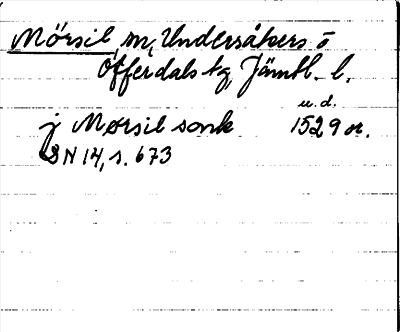 Mörsil, sn, Undersåkers o
Offerdals tg, Jämtl. l.
u.d.
j Mørsil sonk 1529 or.
SN 14, s. 673